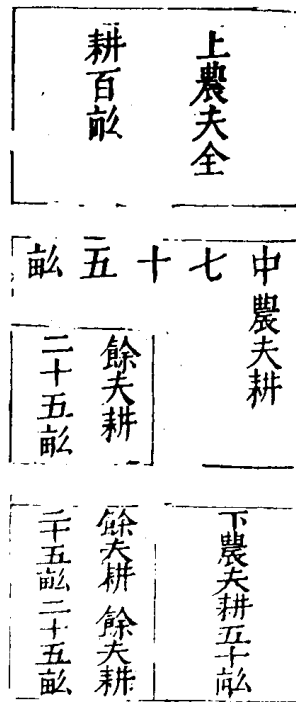 上農夫全
耕百畝
中農夫耕
七十五畝
餘夫耕
二十五畝
下農夫耕五十畝
餘夫耕
二十五畝
餘夫耕
二十五畝